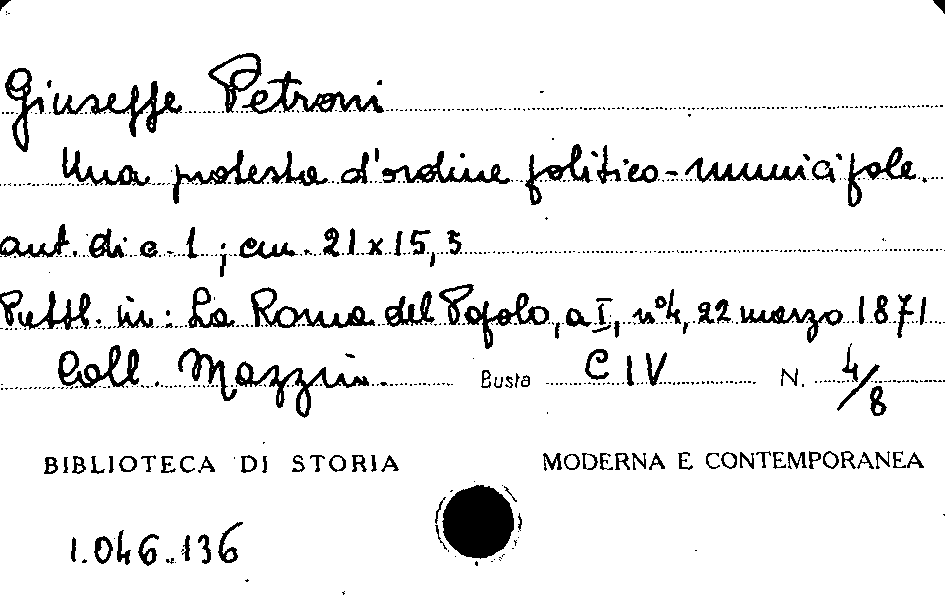 Giuseppe Petroni
Una protesta d'ordine politico-municipale.
aut. di c. 1; cm. 21x15,5
Pubbl. in: La Roma del Popolo, a I, n°4, 22 marzo 1871
Coll. Mazzini. Busta C IV N. 4/8
BIBLIOTECA DI STORIA MODERNA E CONTEMPORANEA
1.046.136